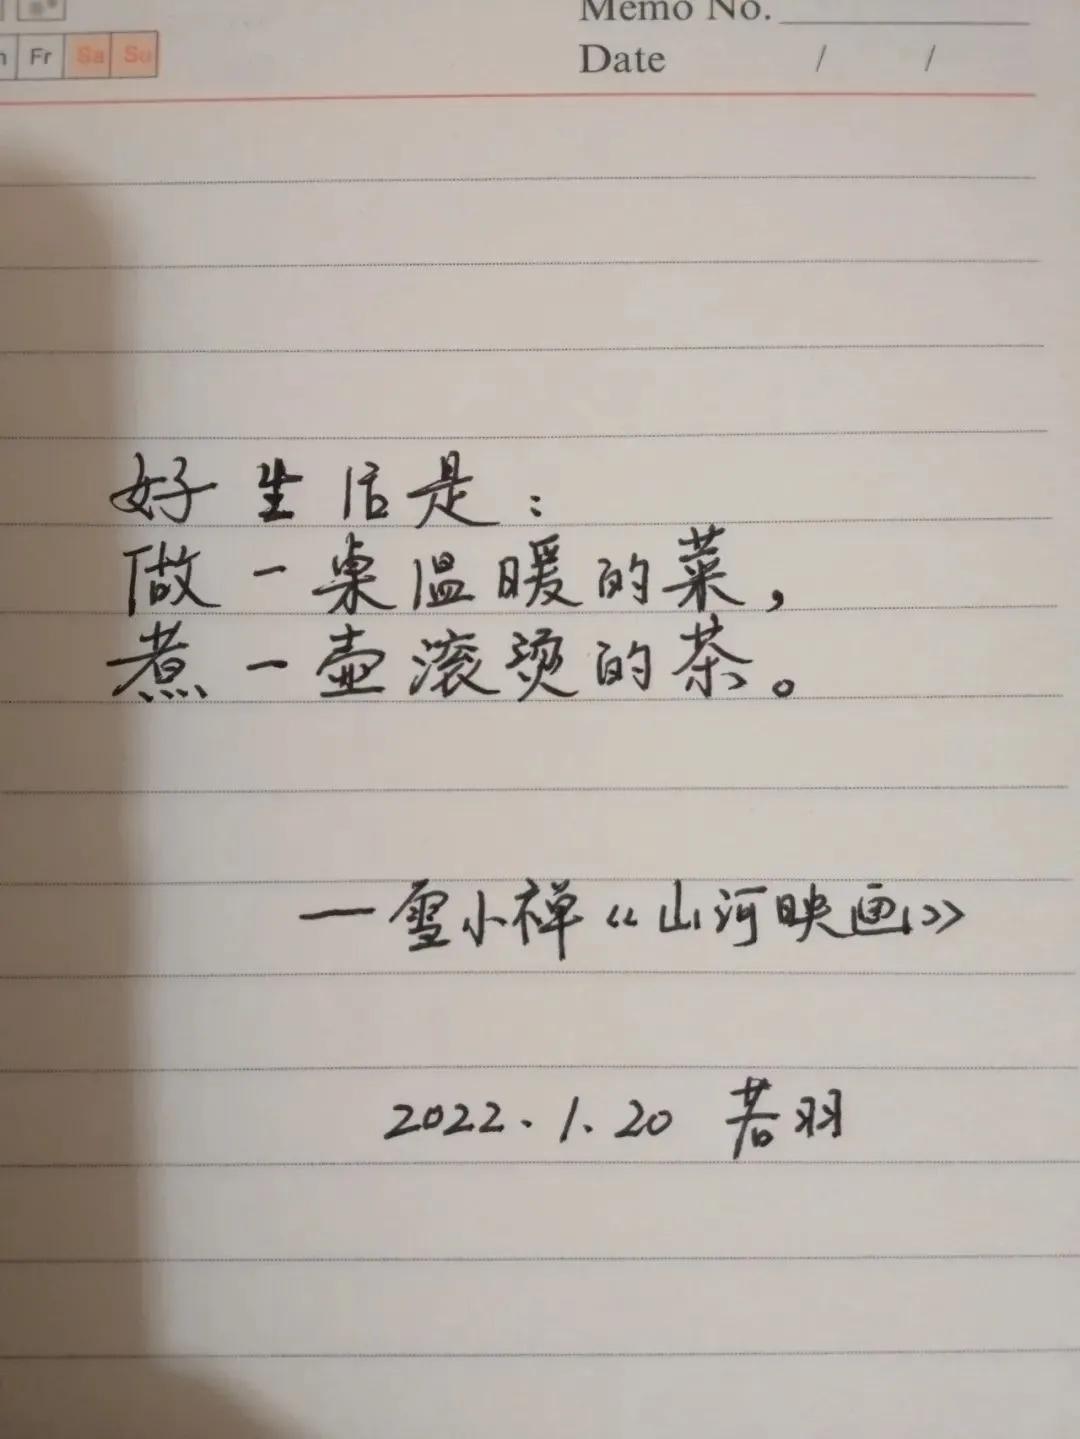 Memo No.
Fr Sa Su
Date / /
好生活是：
做一桌温暖的菜，
煮一壶滚烫的茶。
—雪小禅《山河映画》
2022、1、20 若羽